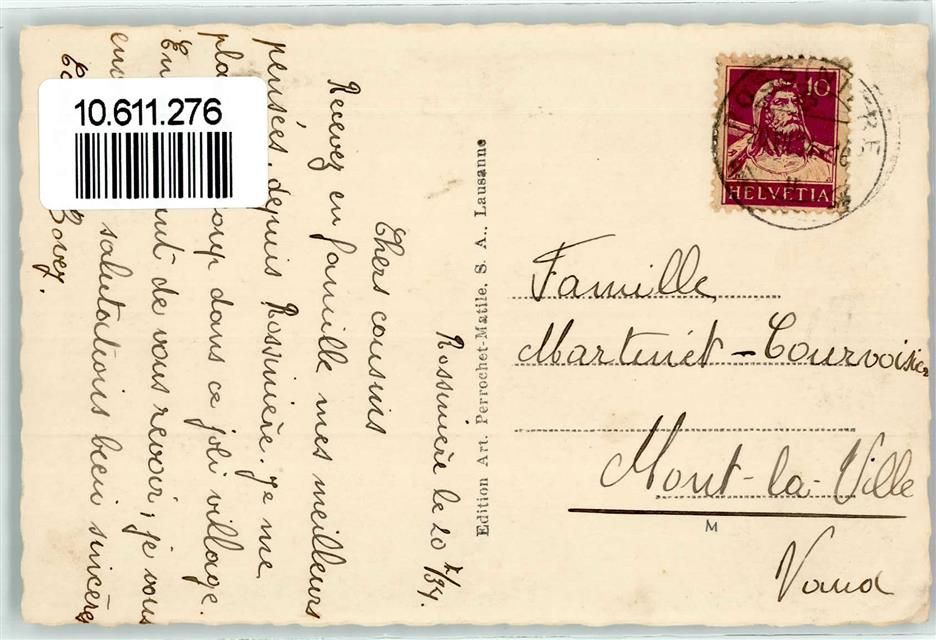 10.611.276
Rossinière le 20 X/34.
Chers cousins
Recevez en famille mes meilleurs
pensées, depuis Rossinière. Je me
pla oup dans ce joli village.
En nt de vous revoir, je vous
en salutations bien sincères
Bovey.
Edition Art. Perrochet-Matile, S. A., Lausanne
10
HELVETIA
Famille
Martinet-Courvoisier
Mont-la-Ville
M
Vaud